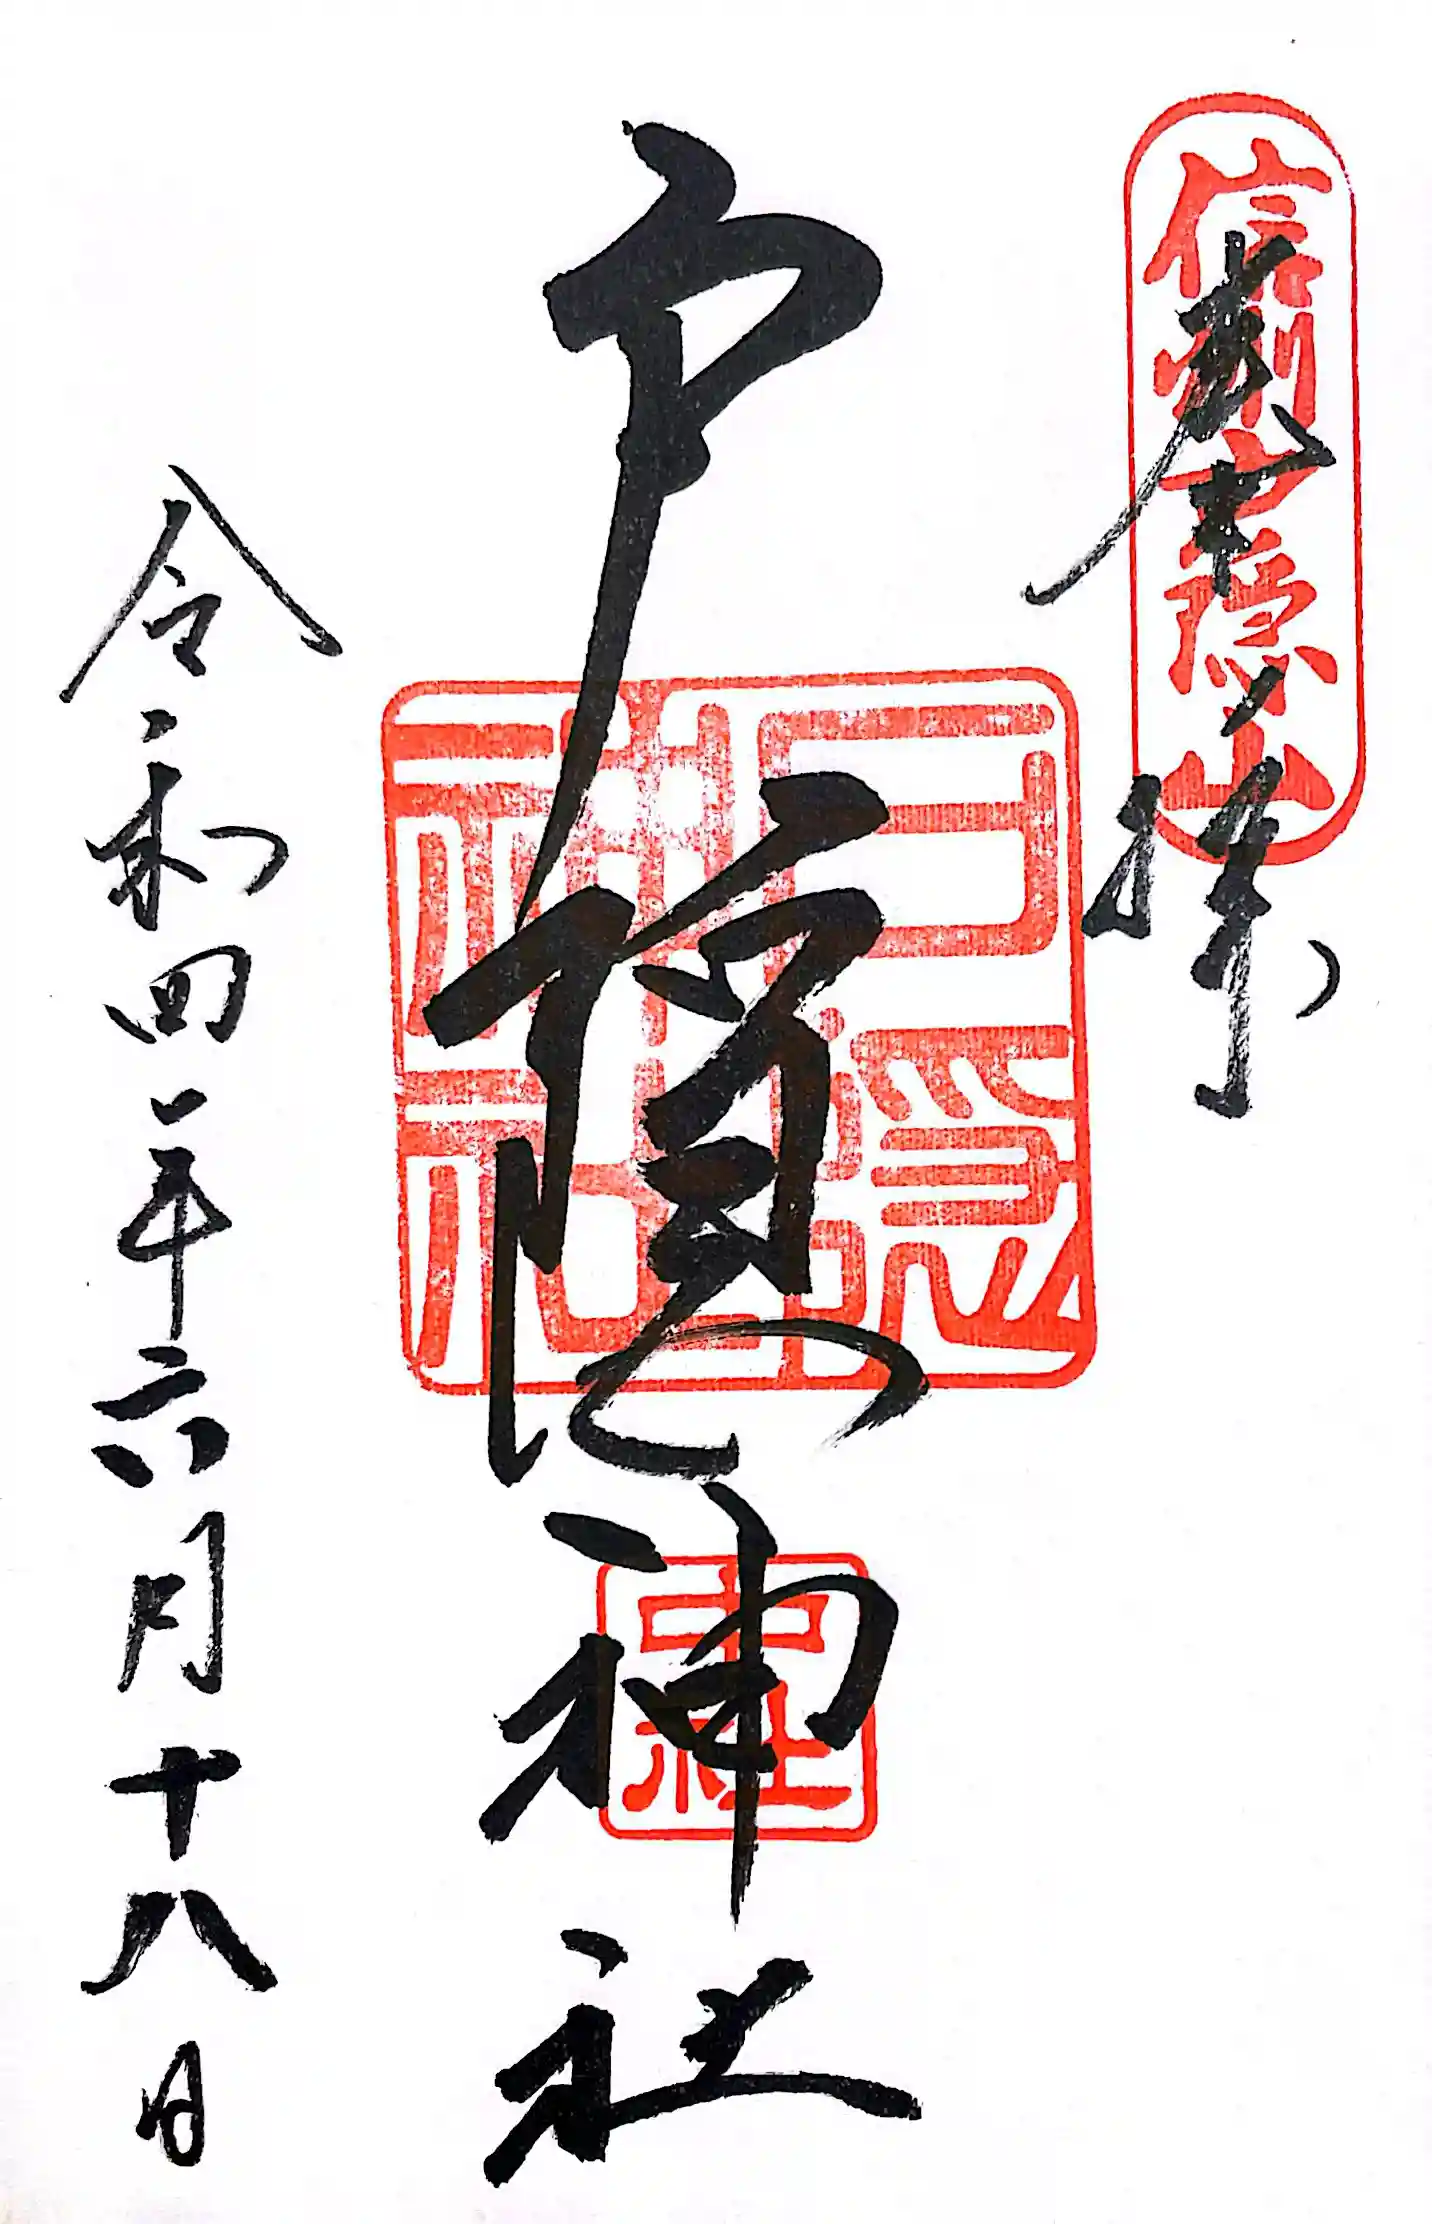 信州戸隠山
奉拝
戸隠神社
戸隠
神社
中社
令和四年六月十八日